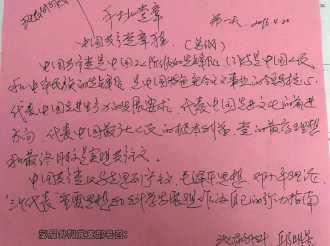 手抄党章
第一天 2016.4.20
中国共产党章程 (总纲)
中国共产党是中国工人阶级的先锋队, 同时是中国人民
和中华民族的先锋队, 是中国特色社会主义事业的领导核心,
代表中国先进生产力的发展要求, 代表中国先进文化的前进
方向, 代表中国最广大人民的根本利益。党的最高理想
和最终目标是实现共产主义。
中国共产党以马克思列宁主义、毛泽东思想、邓小平理论、
"三个代表"重要思想和科学发展观作为自己的行动指南
泌尿外科